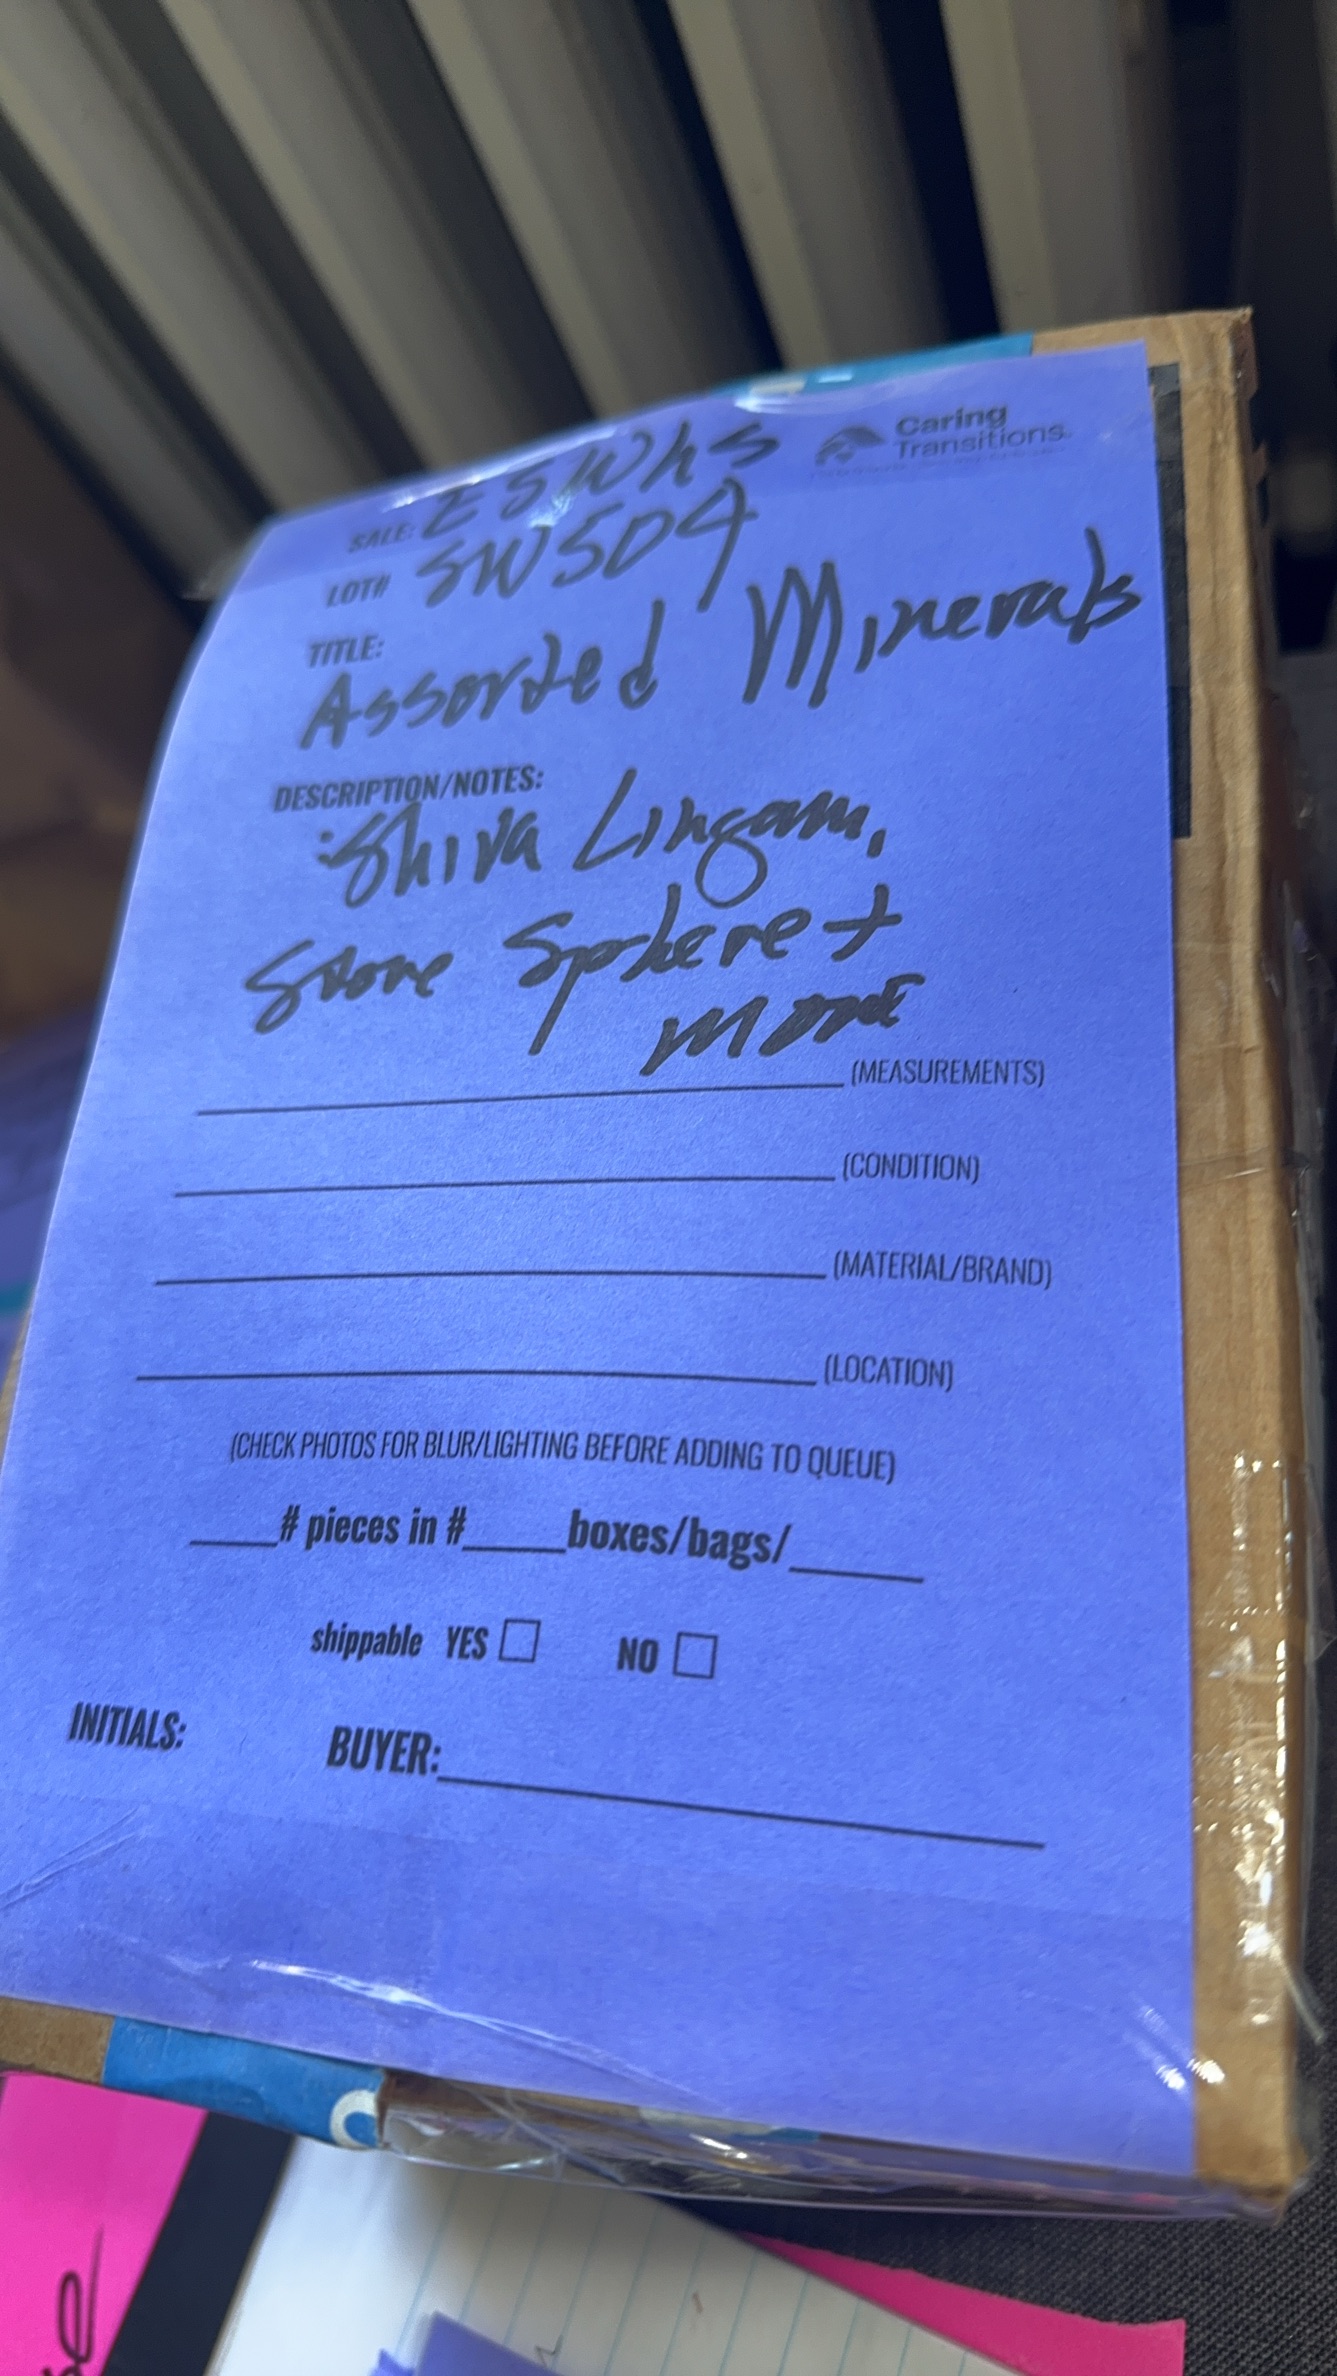 Caring
Transitions.
SALE: ESWhS
LOT# SW504
TITLE:
Assorted Minerals
DESCRIPTION/NOTES:
Shiva Lingam,
Stone Sphere +
more
(MEASUREMENTS)
(CONDITION)
(MATERIAL/BRAND)
(LOCATION)
(CHECK PHOTOS FOR BLUR/LIGHTING BEFORE ADDING TO QUEUE)
# pieces in # boxes/bags/
shippable YES NO
INITIALS: BUYER: